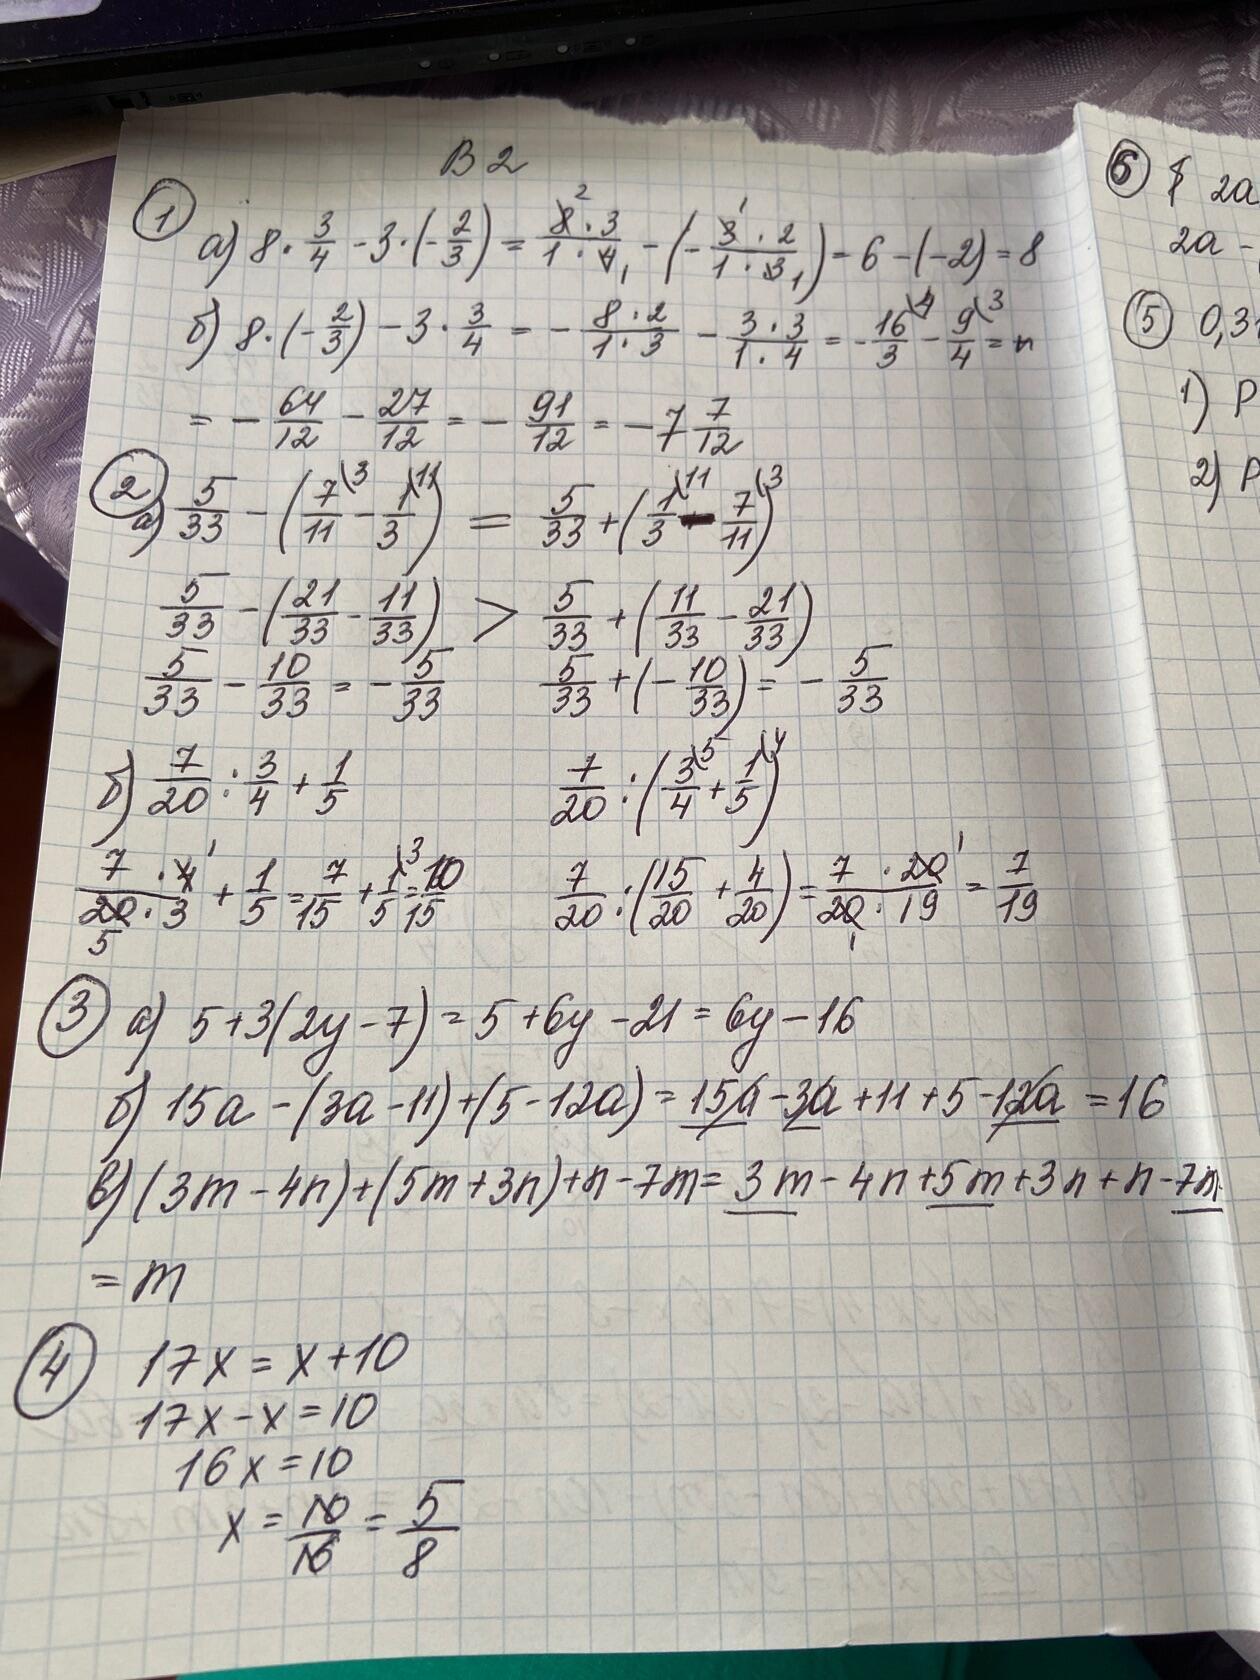 В 2
① а) 8 · 3/4 − 3 · (−2/3) = 8² · 3 / 1 · 4₁ − (− 3¹ · 2 / 1 · 3₁) = 6 − (−2) = 8
б) 8 · (−2/3) − 3 · 3/4 = − 8 · 2 / 1 · 3 − 3 · 3 / 1 · 4 = − 16/3 \4 − 9/4 \3 =
= − 64/12 − 27/12 = − 91/12 = − 7 7/12
② а) 5/33 − (7/11 \3 − 1/3 \11) = 5/33 + (1/3 \11 − 7/11 \3)
5/33 − (21/33 − 11/33) > 5/33 + (11/33 − 21/33)
5/33 − 10/33 = − 5/33 5/33 + (− 10/33) = − 5/33
б) 7/20 : 3/4 + 1/5 7/20 : (3/4 \5 + 1/5 \4)
7 · 4¹ / 20₅ · 3 + 1/5 = 7/15 + 1/5 \3 = 10/15 7/20 : (15/20 + 4/20) = 7 · 20¹ / 20₁ · 19 = 7/19
③ а) 5 + 3(2y − 7) = 5 + 6y − 21 = 6y − 16
б) 15a − (3a − 11) + (5 − 12a) = 15a − 3a + 11 + 5 − 12a = 16
в) (3m − 4n) + (5m + 3n) + n − 7m = 3m − 4n + 5m + 3n + n − 7m
= m
④ 17x = x + 10
17x − x = 10
16x = 10
x = 10/16 = 5/8
⑥ 2a
2a −
⑤ 0,3
1) Р
2) Р